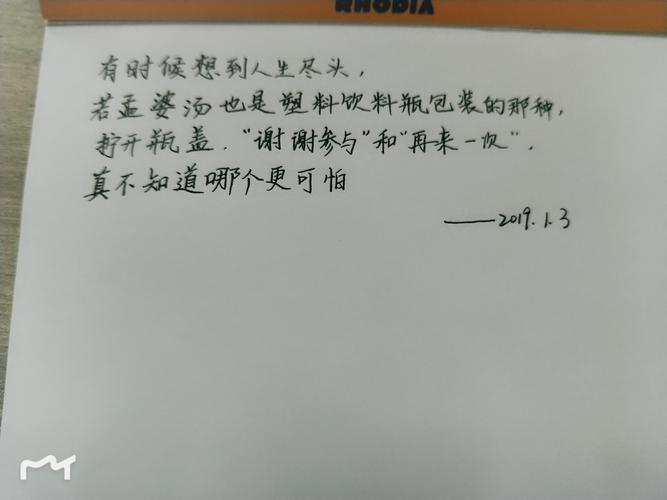 RHODIA
有时候想到人生尽头，
若孟婆汤也是塑料饮料瓶包装的那种，
拧开瓶盖，“谢谢参与”和“再来一次”，
真不知道哪个更可怕
——2019.1.3